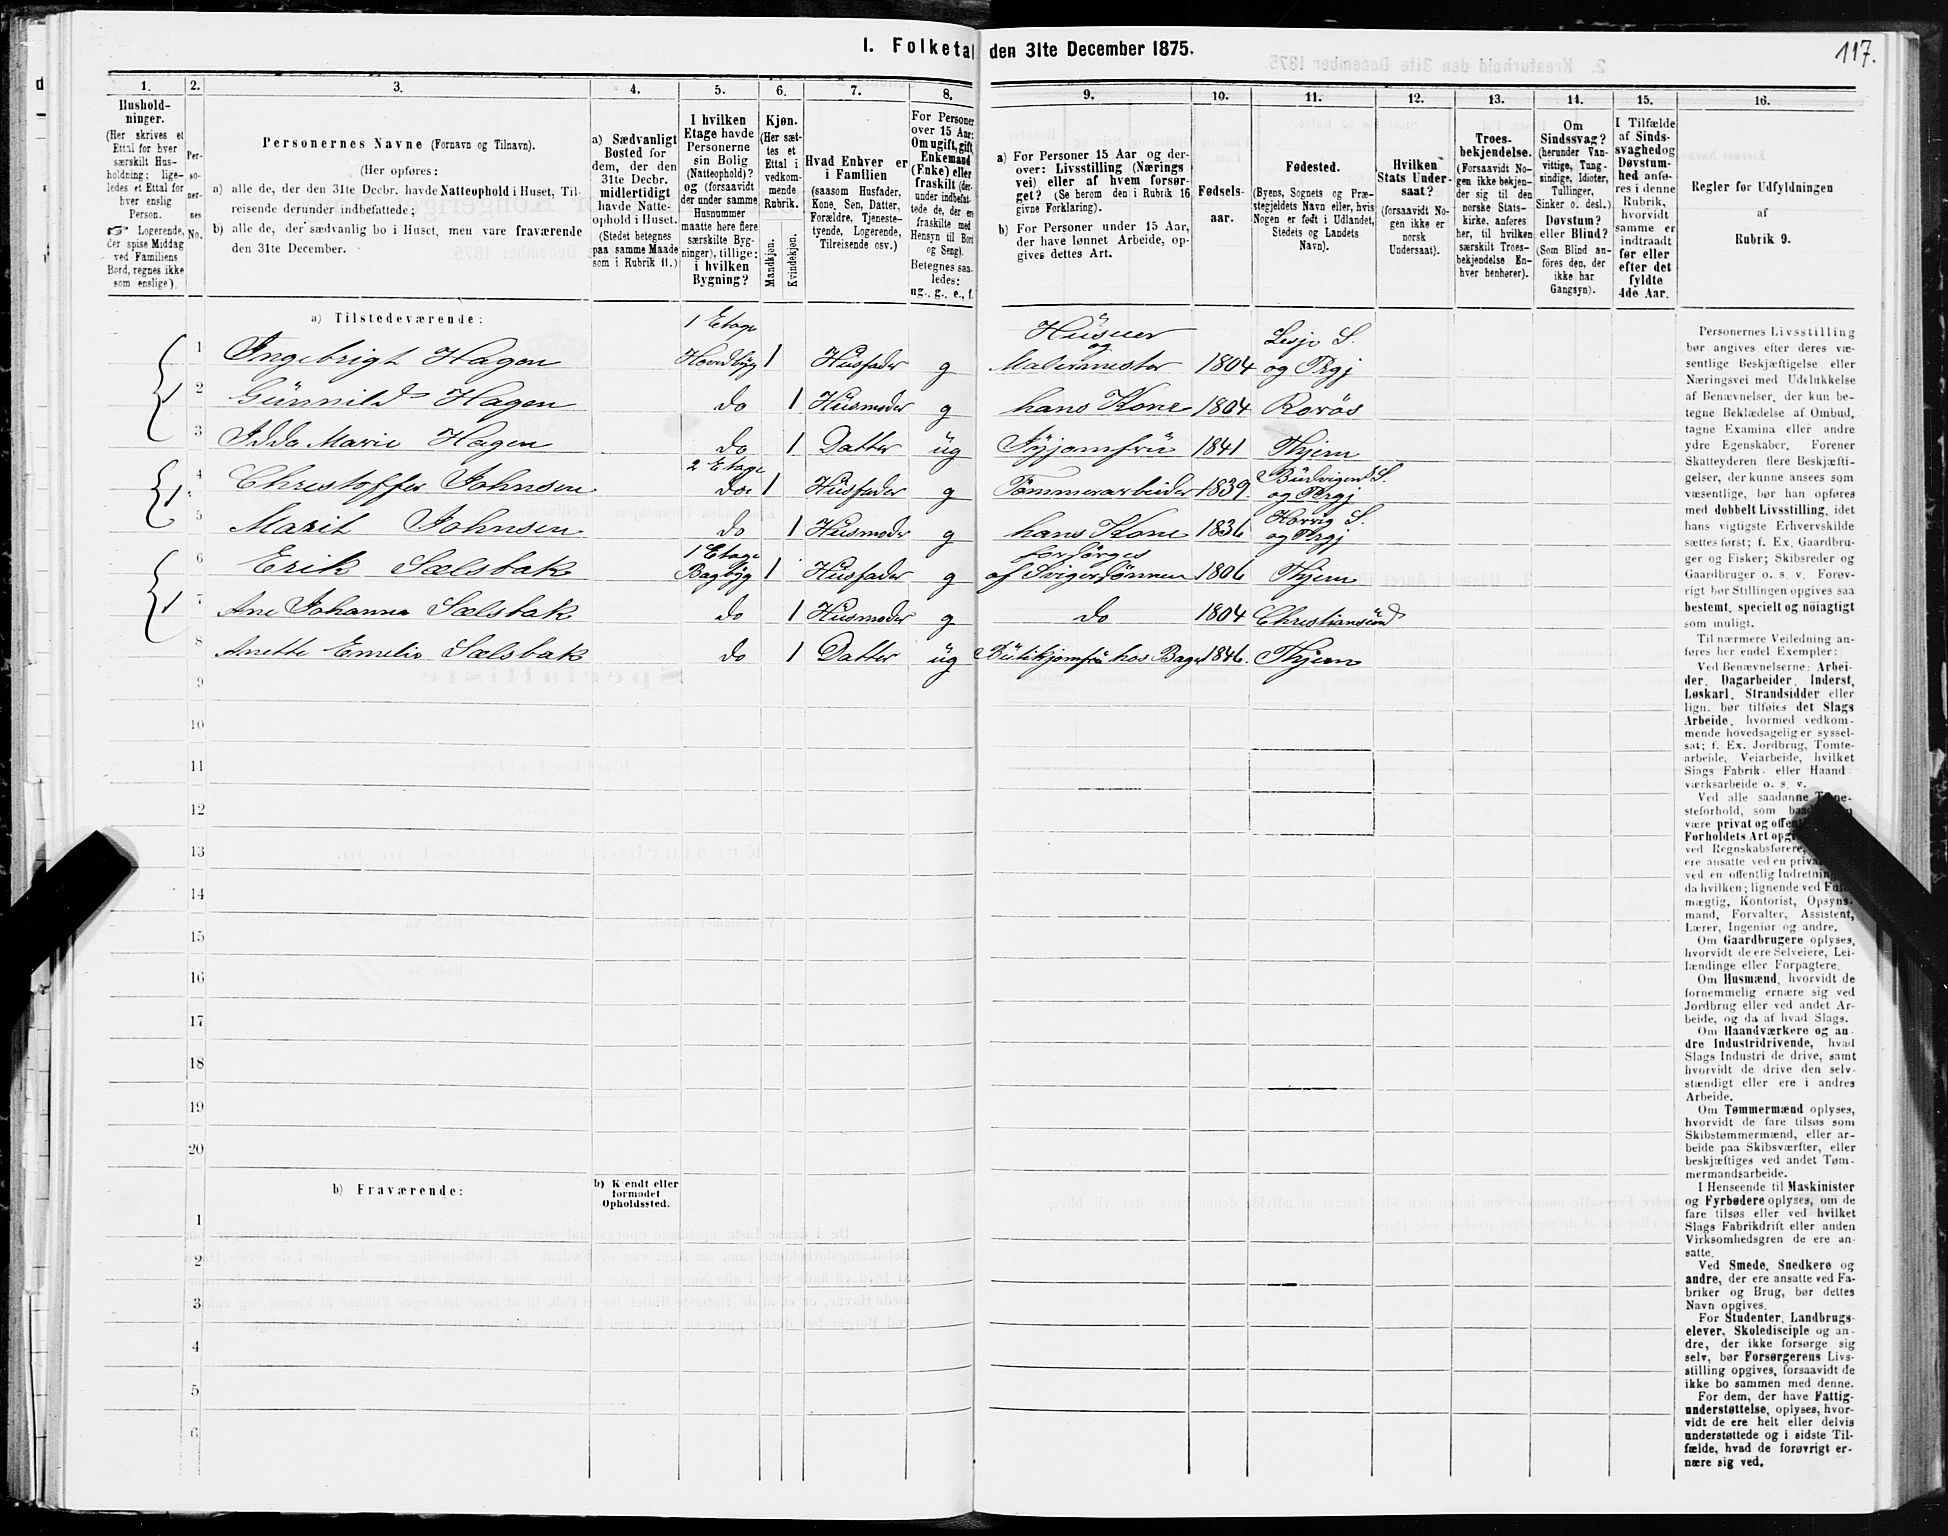 117.
I. Folketal den 31te December 1875.
1. 2. 3. 4. 5. 6. 7. 8. 9. 10. 11. 12. 13. 14. 15. 16.
Hushold-
ninger.
(Her skrives et
Ettal for hver
særskilt Hus-
holdning; lige-
ledes et Ettal for
hver enslig
Person.
☞ Logerende,
der spise Middag
ved Familiens
Bord, regnes ikke
som enslige).
Per-
so-
ner-
nes
No.
Personernes Navne (Fornavn og Tilnavn).
(Her opføres:
a) alle de, der den 31te Decbr. havde Natteophold i Huset, Til-
reisende derunder indbefattede;
b) alle de, der sædvanlig bo i Huset, men vare fraværende
den 31te December.
a) Sædvanligt
Bosted for
dem, der den
31te Decbr.
midlertidigt
havde Natte-
ophold i Huset.
(Stedet betegnes
paa samme Maade
som i Rubrik 11.)
I hvilken
Etage havde
Personerne
sin Bolig
(Natteophold)?
og (forsaavidt
der under samme
Husnummer
maatte høre flere
særskilte Byg-
ninger), tillige:
i hvilken
Bygning?
Kjøn.
(Her sæt-
tes et
Ettal i
vedkom-
mende
Rubrik.
Mandkjøn.
Kvindekjøn.
Hvad Enhver er
i Familien
(saasom Husfader,
Kone, Søn, Datter,
Forældre, Tjeneste-
tyende, Logerende,
Tilreisende osv.)
For Personer
over 15 Aar:
Om ugift, gift,
Enkemand
(Enke) eller
fraskilt (der-
under indbefat-
tede de, der er
fraskilte med
Hensyn til Bord
og Seng).
Betegnes saa-
ledes:
ug., g., e., f.
a) For Personer 15 Aar og der-
over: Livsstilling (Nærings
vei) eller af hvem forsør-
get? (Se herom den i Rubrik 16
givne Forklaring).
b) For Personer under 15 Aar,
der have lønnet Arbeide, op-
gives dettes Art.
Fødsels-
aar.
Fødested.
(Byens, Sognets og Præ-
stegjeldets Navn eller, hvis
Nogen er født i Udlandet,
Stedets og Landets
Navn).
Hvilken
Stats Under-
saat?
(forsaavidt No-
gen ikke er
norsk
Undersaat).
Troes-
bekjendelse.
(Forsaavidt No-
gen ikke bekjen-
der sig til den
norske Stats-
kirke, anføres
her, til hvilken
særskilt Troes-
bekjendelse En-
hver henhører).
Om
Sindssvag?
(herunder Van-
vittige, Tung-
sindige, Idioter,
Tullinger,
Sinker o. desl.)
Døvstum?
eller Blind?
(Som Blind an-
føres den, der
ikke har
Gangsyn).
I Tilfælde
af Sinds-
svaghed og
Døvstum-
hed anfø-
res i denne
Rubrik,
hvorvidt
samme er
indtraadt
før eller
efter det
fyldte
4de Aar.
Regler for Udfyldningen
af
Rubrik 9.
a) Tilstedeværende:
1 Ingebrigt Hagen 1 Etage Hovedbyg 1 Husfader g Huseier og Malermester 1804 Lesje S. og Prgj
2 Gunnild Hagen do 1 Husmoder g hans Kone 1804 Rørøs
3 Idda Marie Hagen do 1 Datter üg Syjomfrü 1841 Thjem
4 Christoffer Johnsen 2 Etage do 1 Husfader g Tømmerarbeider 1839 Budvigen S. og Prgj
5 Marit Johnsen do 1 Husmoder g hans Kone 1836 Horrig S. og Prgj
6 Erik Sælsbak 1 Etage Bagbyg 1 Husfader g forsørges af Svigersønnen 1806 Thjem
7 Ane Johanna Sælsbak do 1 Husmoder g do 1804 Christiansünd
8 Anette Emelie Sælsbak do 1 Datter üg Bütikjomfrü hos Bager 1846. Thjem
9
10
11
12
13
14
15
16
17
18
19
20
b) Fraværende:
b) Kjendt eller
formodet
Opholdssted.
1
2
3
4
5
6
Personernes Livsstilling
bør angives efter deres væ-
sentlige Beskjæftigelse eller
Næringsvei med Udelukkelse
af Benævnelser, der kun be-
tegne Beklædelse af Ombud,
tagne Examina eller andre
ydre Egenskaber. Forener
Skatteyderen flere Beskjæfti-
gelser, der kunne ansees som
væsentlige, bør han opføres
med dobbelt Livsstilling, idet
hans vigtigste Erhvervskilde
sættes først; f. Ex. Gaardbru-
ger og Fisker; Skibsreder og
Gaardbruger o. s. v. Forøv-
rigt bør Stillingen opgives saa
bestemt, specielt og nöiagtigt
som muligt.
Til nærmere Veiledning an-
føres her endel Exempler:
Ved Benævnelserne: Arbei-
der, Dagarbeider, Inderst,
Løskarl, Strandsidder eller
lign. bør tilføies det Slags
Arbeide, hvormed vedkom-
mende hovedsagelig er syssel-
sat; f. Ex. Jordbrug, Tomte-
arbeide, Veiarbeide, hvilket
Slags Fabrik- eller Haand-
værksarbeide o. s. v.
Ved alle saadanne Tjene-
steforhold, som
være privat og
Forholdets Art
ved Regnskabsførere,
ere ansatte ved en
ved en offentlig Indretning
da hvilken; lignende ved
mægtig, Kontorist, Opsyns-
mand, Forvalter, Assistent,
Lærer, Ingeniør og andre.
Om Gaardbrugere oplyses,
hvorvidt de ere Selveiere, Lei-
lændinge eller Forpagtere.
Om Husmænd, hvorvidt de
fornemmelig ernære sig ved
Jordbrug eller ved andet Ar-
beide, og da af hvad Slags.
Om Haandværkere og an-
dre Industridrivende, hvad
Slags Industri de drive, samt
hvorvidt de drive den selv-
stændigt eller ere i andres
Arbeide.
Om Tømmermænd oplyses,
hvorvidt de fare tilsøs som
Skibstømmermænd, eller ar-
beide paa Skibsværfter, eller
beskjæftiges ved andet Tøm-
mermandsarbeide.
I Henseende til Maskinister
og Fyrbødere oplyses, om de
fare tilsøs eller ved hvilket
Slags Fabrikdrift eller anden
Virksomhedsgren de ere an-
satte.
Ved Smede, Snedkere og
andre, der ere ansatte ved Fa-
briker og Brug, bør dettes
Navn opgives.
For Studenter, Landbrugs-
elever, Skoledisciple og an-
dre, der ikke forsørge sig
selv, bør Forsørgerens Livs-
stilling opgives, forsaavidt de
ikke bo sammen med denne.
For dem, der have Fattig-
understøttelse, oplyses, hvor-
vidt de ere helt eller delvis
understøttede og i sidste Til-
fælde, hvad de forøvrigt er-
nære sig ved.